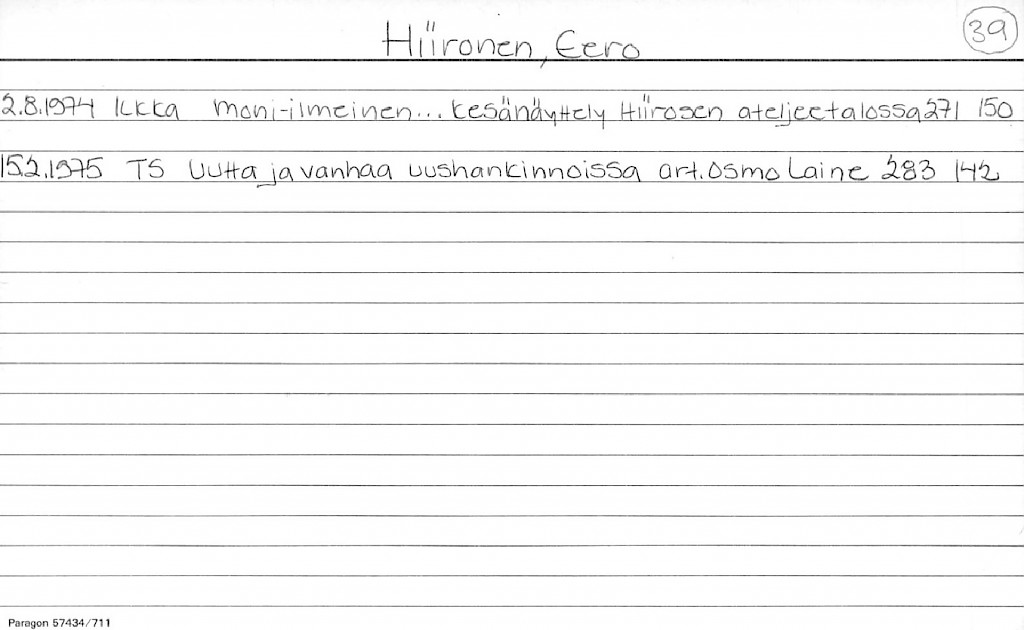 Hiironen, Eero
39
2.8.1974 Ilkka moni-ilmeinen... kesänäyttely Hiirosen ateljeetalossa 271 150
15.2.1975 TS Uutta ja vanhaa uushankinnoissa art. Osmo Laine 283 142
Paragon 57434/711